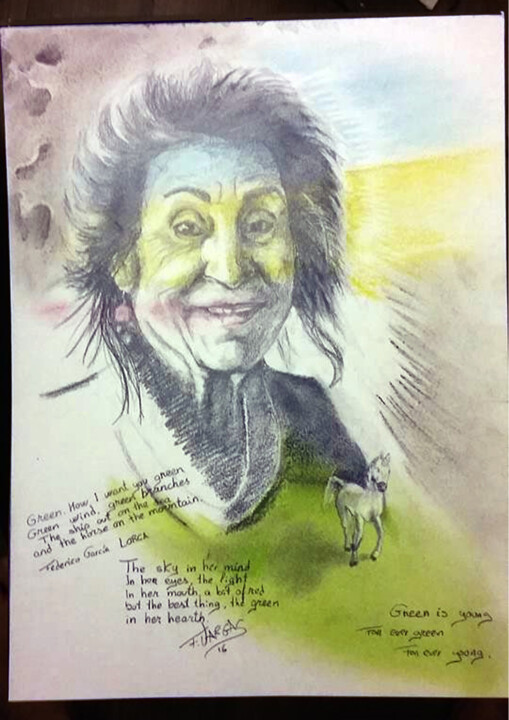 Green. How I want you green
Green wind, green branches
The ship out on the sea
and the horse on the mountain.
Federico García LORCA
The sky in her mind
In her eyes, the light
In her mouth, a bit of red
but the best thing, the green
in her hearth.
F. VARGAS
16
Green is young
For ever green
For ever young.